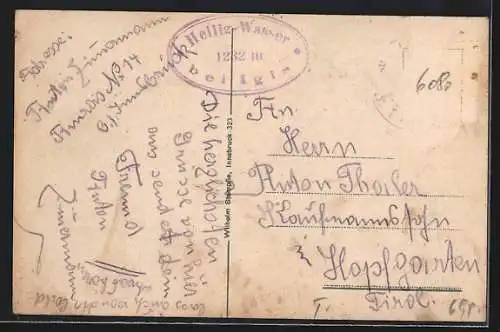 Adresse:
Anton Zimmermann
Amras No 14
b/ Innsbruck
Heilig-Wasser
1232 m
bei Igls
6080
Die herzlichsten
Grüsse von hier
aus sendet dein
Freund
Anton
Zimmermann
lass auch von dir bald
was hören
Wilhelm Stempfle, Innsbruck 323
An
Herrn
Anton Thaler
Kaufmannssohn
Hopfgarten
Tirol.
T.